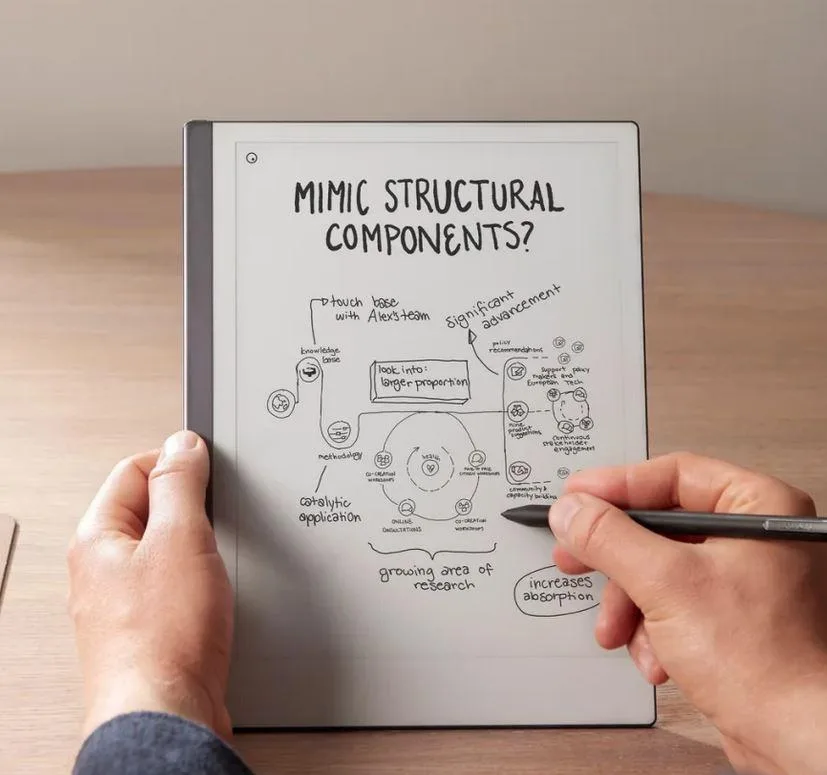 MIMIC STRUCTURAL
COMPONENTS?
touch base
with Alex's team
significant
advancement
knowledge
base
policy
recommendations
look into:
larger proportion
support policy
makers and
European Tech
methodology
health
CO-CREATION
WORKSHOPS
continuous
stakeholder
engagement
catalytic
application
ONLINE
CO-CREATION
WORKSHOPS
community &
capacity building
growing area of
research
increases
absorption